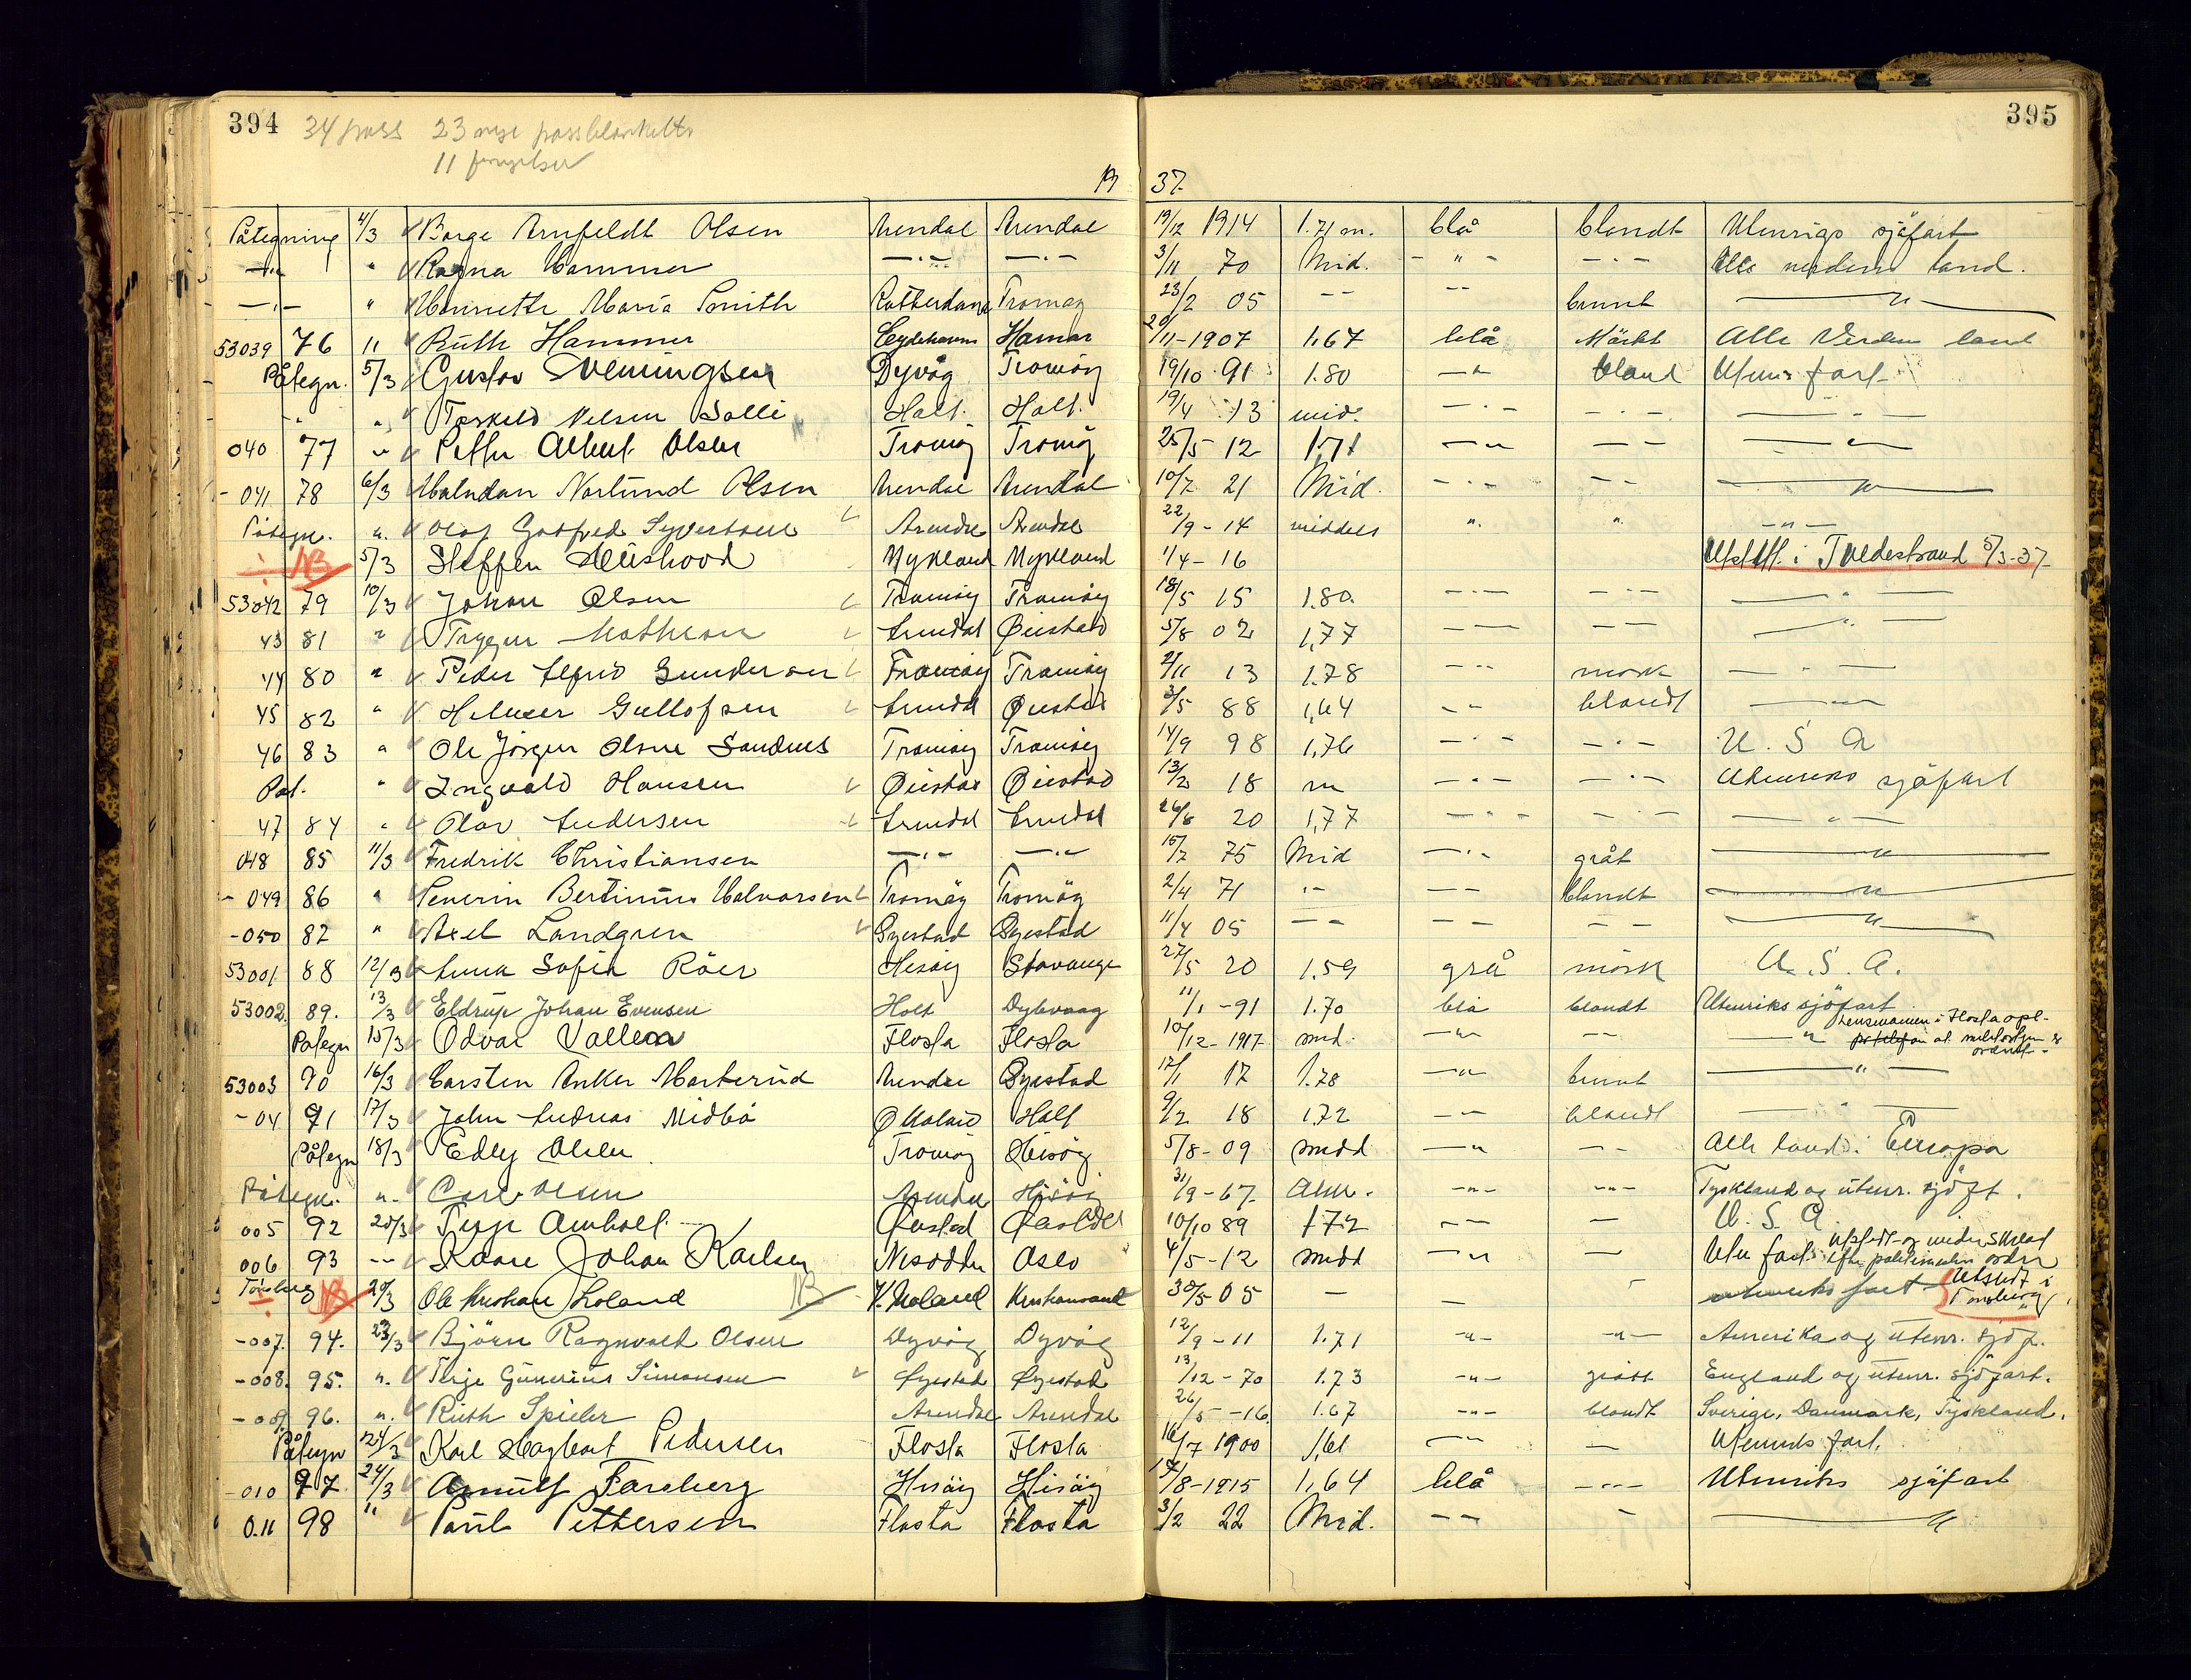 394 34 pass 23 nye passblanketter
11 fornyelser
395
19 37.
Påtegning 4/3 Borge Arnfeldt Olsen Arendal Arendal 19/12 1914 1.71 m. blå blondt Utenrigs sjöfart
—"— " Ragna Hammer —"— —"— 3/11 70 Mid. - " - —"— Alle verdens land.
—"— " Henriette Maria Smith Rotterdam Tromøy 23/2 05 — — — — brunt —"—
53039 76 11 Ruth Hammer Eydehavn Hamar 20/11-1907 1,67 blå Mörkt Alle Verdens land
Påtegn. 5/3 Gustav Flemingsen Dyvåg Tromöy 19/10 91 1.80 —"— blond Utenr. fart
" " Torkild Nilsen Solli Holt. Holt. 19/4 13 mid. —"— —"— —"—
040 77 " Petter Albert Olsen Tromöy Tromöy 25/5 12 1,71 —"— — — —"—
- 041 78 6/3 Halvdan Norlund Olsen Arendal Arendal 10/7 21 Mid. —"— — — —"—
Påtegn. " Olaf Godfred Syvertsen Arendal Arendal 22/9 - 14 middels " " —"—
÷ NB 5/3 Steffen Heushood Mykland Mykland 1/4 - 16 Utstedt i Tvedestrand 5/3-37
53042 79 10/3 Johan Olsen Tromöy Tromöy 18/5 15 1.80. —"— —"— —"—
43 81 " Trygve Mathisen Arendal Øiestad 5/8 02 1,77 — — — — —"—
44 80 " Peder Alfred Gundersen Tromöy Tromöy 2/11 13 1.78 —"— mörk — " —
45 82 " Hilmer Gullofsen Arendal Øiestad 3/5 88 1,64 — — blondt —"—
46 83 " Ole Jörgen Olsen Sandnes Tromöy Tromöy 14/9 98 1,76 —"— —"— U. S A
Pat. " Ingvald Hansen Øiestad Øiestad 13/2 18 m —"— —"— Utenriks sjöfart
47 84 " Olav Andersen Arendal Arendal 26/6 20 1,77 —"— — — —"—
048 85 11/3 Fredrik Christiansen —"— —"— 15/7 75 Mid —"— gråt —"—
- 049 86 " Severin Bertinius Halvorsen Tromöy Tromöy 2/4 71 "— — — blondt —"—
-050 87 " Axel Landgren Øyestad Øyestad 11/4 05 — — — — — — —"—
53001 88 12/3 Anna Sofie Röer Hisöy Stavanger 27/5 20 1.59 grå mörk U. S. A.
53002. 89. 13/3 Eldrup Johan Evensen Holt Dybvaag 11/1 - 91 1.70 blå blondt Utenriks sjöfart
Påtegn 15/3 Odvar Vallem Flosta Flosta 10/12 - 1917 mid. —"— — — —"— Lensmannen i Flosta opl.
53003 90 16/3 Carsten Anker Markerud Arendal Øyestad 12/1 17 1.78 —"— brunt —"—
- 04 91 17/3 John Andreas Midbö Ø Moland Holt 9/2 18 1.72 — — blondt —"—
Påtegn 18/3 Edly Olsen Tromöy Hisöy 5/8 - 09 midd —"— — — Alle land i Europa
Påtegn. " Carl Olsen Arendal Hisöy 31/9 - 67. Alm. —"— —"— Tyskland og utenr. sjöft.
005 92 20/3 Terje Amholt Øiestad 10/10 89 172 — — — U. S. A.
006 93 — Kaare Johan Karlsen Nesodden Oslo 4/5 - 12 midd —"— — Uten fart. Utstedt og underskrevet efter politimesterens ordre
Tönsberg ÷ NB 20/3 Ole Kristian Loland NB V. Moland Kristiansand 30/5 05 — — — utenriks fart Utstedt i Tönsberg
-007. 94. 23/3 Björn Ragnvald Olsen Dyvåg Dyvåg 12/9 - 11 1.71 —"— —"— Amerika og utenr. sjöf.
-008. 95. " Terje Gunerius Simonsen Øyestad Øyestad 13/12 - 70 1.73 —"— grått England og utenr. sjöfart.
-009. 96. " Ruth Spieler Arendal Arendal 26/5 - 16. 1.67 —"— blondt Sverige, Danmark, Tyskland.
Påtegn 24/3 Karl Dagbart Pedersen Flosta Flosta 16/7 1900 1,61 —"— — Utenriks fart.
-010 97 24/3 Arnulf Farsberg Hisöy Hisöy 14/8-1915 1,64 blå —"— Utenriks sjöfart
0.11 98 " Paul Pettersen Flosta Flosta 3/2 22 Mid. — — — —"—